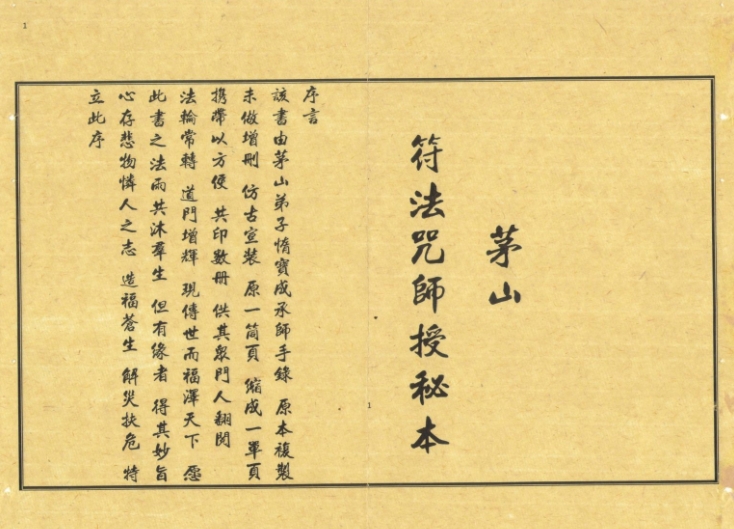 茅山
符法咒師授秘本
序言
該書由茅山弟子惰寶成承師手錄 原本複製
未做增刪 仿古宣裝 原一筒頁 縮成一單頁
携帶以方便 共印數冊 供其眾門人翻閱
法輪常轉 道門增輝 現傳世而福澤天下 愿
此書之法雨共沐羣生 但有缘者 得其妙旨
心存悲物憐人之志 造福蒼生 解災扶危 特
立此序
1
1